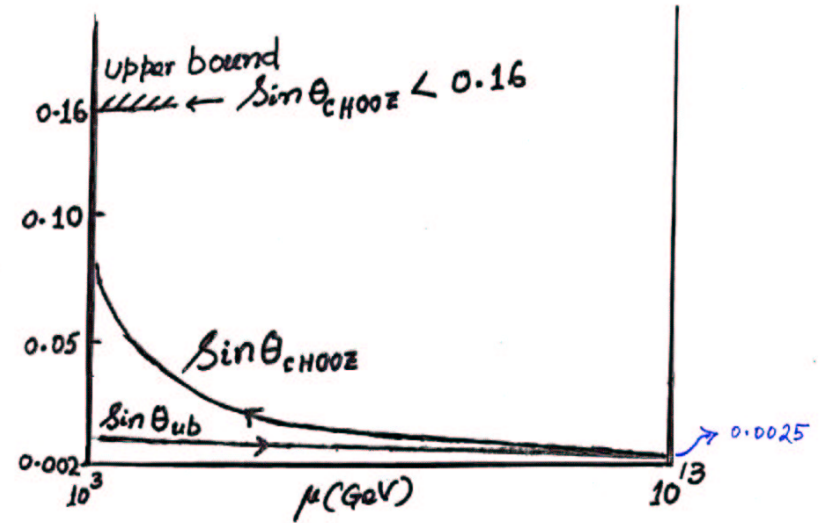 upper bound
0.16 ← Sin θCHOOZ < 0.16
0.10
0.05
Sin θCHOOZ
Sin θub
0.0025
0.002
10³
μ(GeV)
10¹³